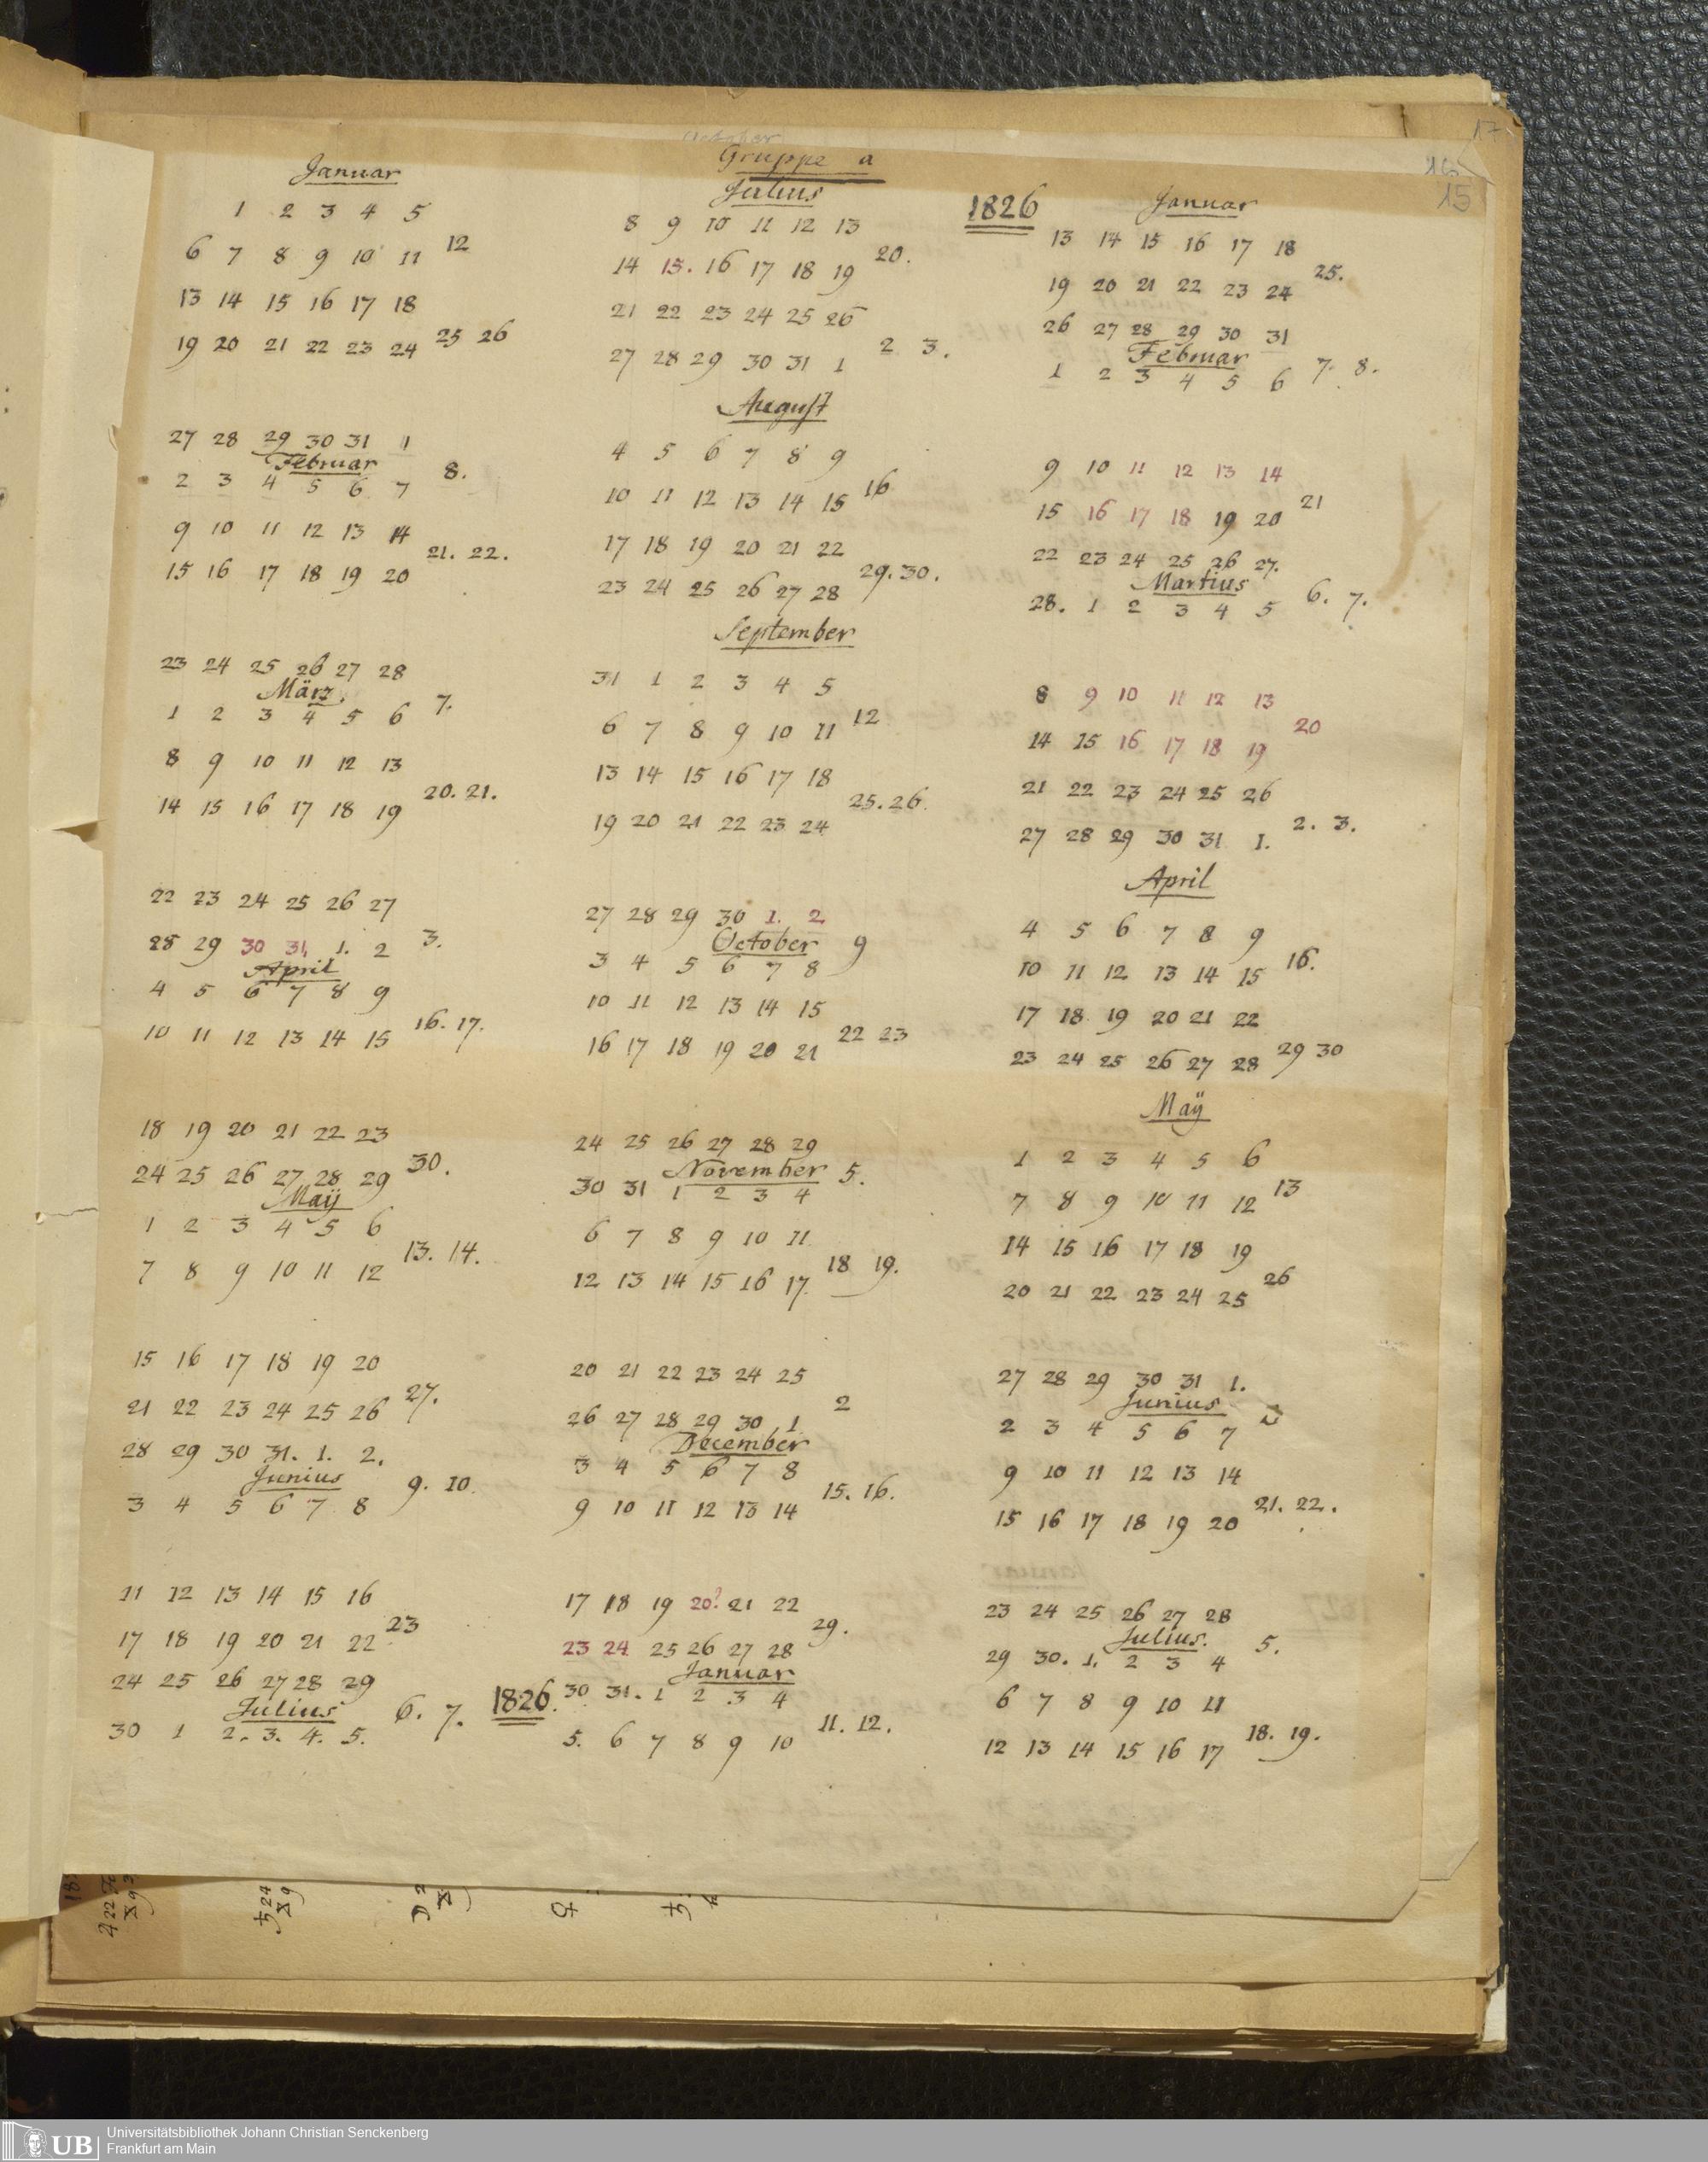 17
16
15
October
Gruppe a
Januar
1 2 3 4 5
6 7 8 9 10 11 12
13 14 15 16 17 18
19 20 21 22 23 24 25 26
27 28 29 30 31 1
Februar
2 3 4 5 6 7 8.
9 10 11 12 13 14
15 16 17 18 19 20 21. 22.
23 24 25 26 27 28
März
1 2 3 4 5 6 7.
8 9 10 11 12 13
14 15 16 17 18 19 20. 21.
22 23 24 25 26 27
28 29 30 31. 1. 2 3.
April
4 5 6 7 8 9
10 11 12 13 14 15 16. 17.
18 19 20 21 22 23
24 25 26 27 28 29 30.
Maÿ
1 2 3 4 5 6
7 8 9 10 11 12 13. 14.
15 16 17 18 19 20
21 22 23 24 25 26 27.
28 29 30 31. 1. 2.
Junius
3 4 5 6 7 8 9. 10.
11 12 13 14 15 16
17 18 19 20 21 22 23
24 25 26 27 28 29
Julius
30 1 2. 3. 4. 5. 6. 7.
Julius
8 9 10 11 12 13
14 15. 16 17 18 19 20.
21 22 23 24 25 26
27 28 29 30 31 1 2 3.
August
4 5 6 7 8 9
10 11 12 13 14 15 16
17 18 19 20 21 22
23 24 25 26 27 28 29. 30.
September
31 1 2 3 4 5
6 7 8 9 10 11 12
13 14 15 16 17 18
19 20 21 22 23 24 25. 26.
27 28 29 30 1. 2.
October
3 4 5 6 7 8 9
10 11 12 13 14 15
16 17 18 19 20 21 22 23
24 25 26 27 28 29
November
30 31 1 2 3 4 5.
6 7 8 9 10 11
12 13 14 15 16 17. 18 19.
20 21 22 23 24 25
26 27 28 29 30 1 2
December
3 4 5 6 7 8
9 10 11 12 13 14 15. 16.
17 18 19 20? 21 22
23 24 25 26 27 28 29.
Januar
1826. 30 31. 1 2 3 4
5. 6 7 8 9 10 11. 12.
1826 Januar
13 14 15 16 17 18
19 20 21 22 23 24 25.
26 27 28 29 30 31
Februar
1 2 3 4 5 6 7. 8.
9 10 11 12 13 14
15 16 17 18 19 20 21
22 23 24 25 26 27.
Martius
28. 1 2 3 4 5 6. 7.
8 9 10 11 12 13
14 15 16 17 18 19 20
21 22 23 24 25 26
27 28 29 30 31 1. 2. 3.
April
4 5 6 7 8 9
10 11 12 13 14 15 16.
17 18 19 20 21 22
23 24 25 26 27 28 29 30
Maÿ
1 2 3 4 5 6
7 8 9 10 11 12 13
14 15 16 17 18 19
20 21 22 23 24 25 26
27 28 29 30 31 1.
Junius
2 3 4 5 6 7
9 10 11 12 13 14
15 16 17 18 19 20 21. 22.
23 24 25 26 27 28
Julius.
29 30. 1. 2 3 4 5.
6 7 8 9 10 11
12 13 14 15 16 17 18. 19.
UB
Universitätsbibliothek Johann Christian Senckenberg
Frankfurt am Main